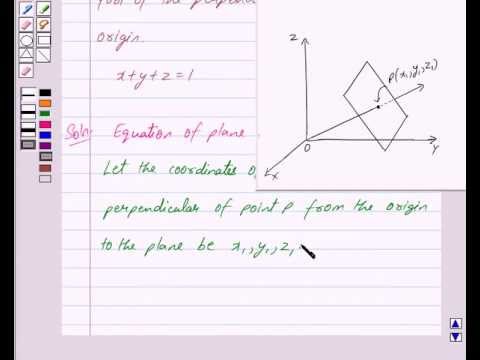 foot of the perpen
origin.
x+y+z=1
Soln: Equation of plane
Let the coordinates o
perpendicular of point P from the origin
to the plane be x₁,y₁,z₁
Z
P(x₁,y₁,z₁)
O
Y
X